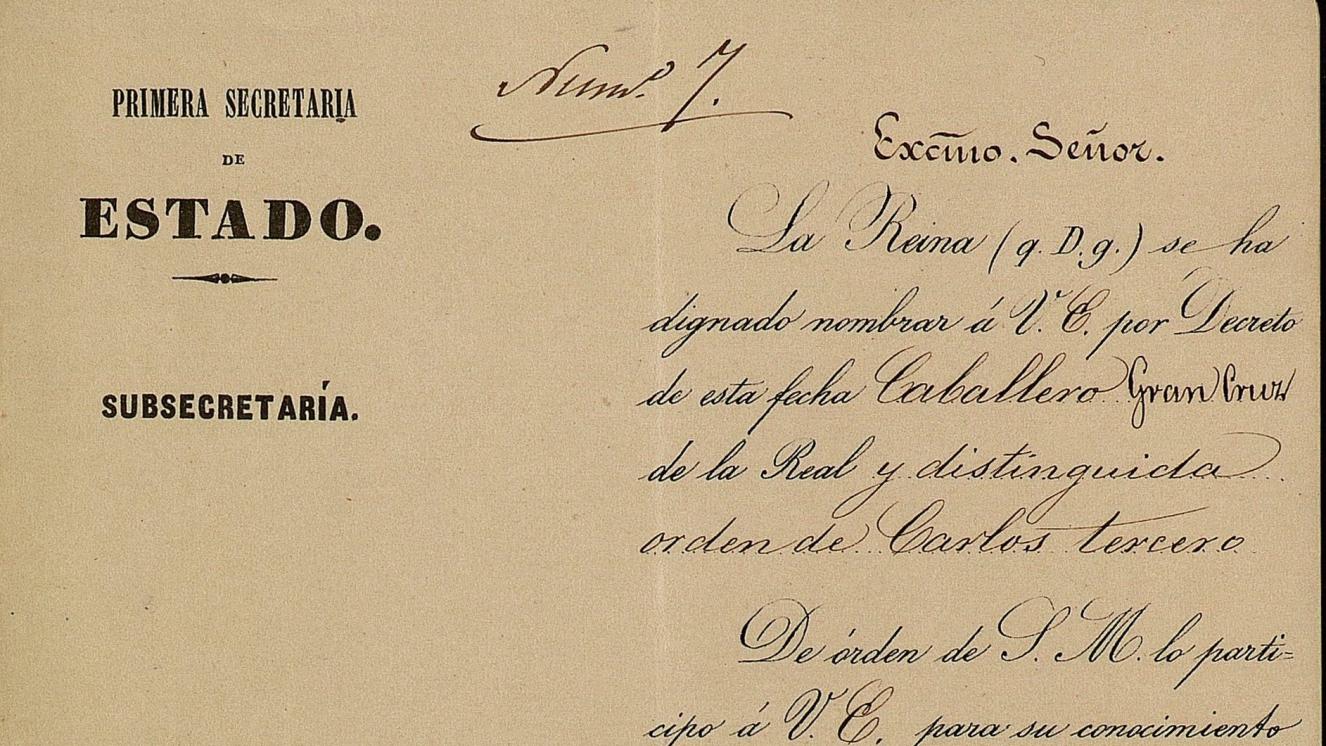 PRIMERA SECRETARIA
DE
ESTADO.
SUBSECRETARÍA.
Numº. 7.
Excm̃o. Señor.
La Reina (q. D. g.) se ha
dignado nombrar á V. E. por Decreto
de esta fecha Caballero Gran Cruz
de la Real y distinguida
orden de Carlos tercero
De órden de S. M. lo parti=
cipo á V. E. para su conocimiento